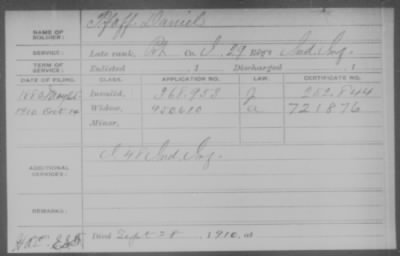 NAME OF SOLDIER: Pfaff, Daniel
SERVICE: Late rank, Co. I, 29 Reg't Ind. Inf.
TERM OF SERVICE: Enlisted , 1 Discharged , 1
DATE OF FILING. CLASS. APPLICATION NO. LAW. CERTIFICATE NO.
1880 Invalid, 368.953 J 252.844
1910 Oct 14 Widow, 950610 a 721876
Minor,
ADDITIONAL SERVICES: 48 Ind. Inf.
REMARKS:
Died Sept 28, 1910, at